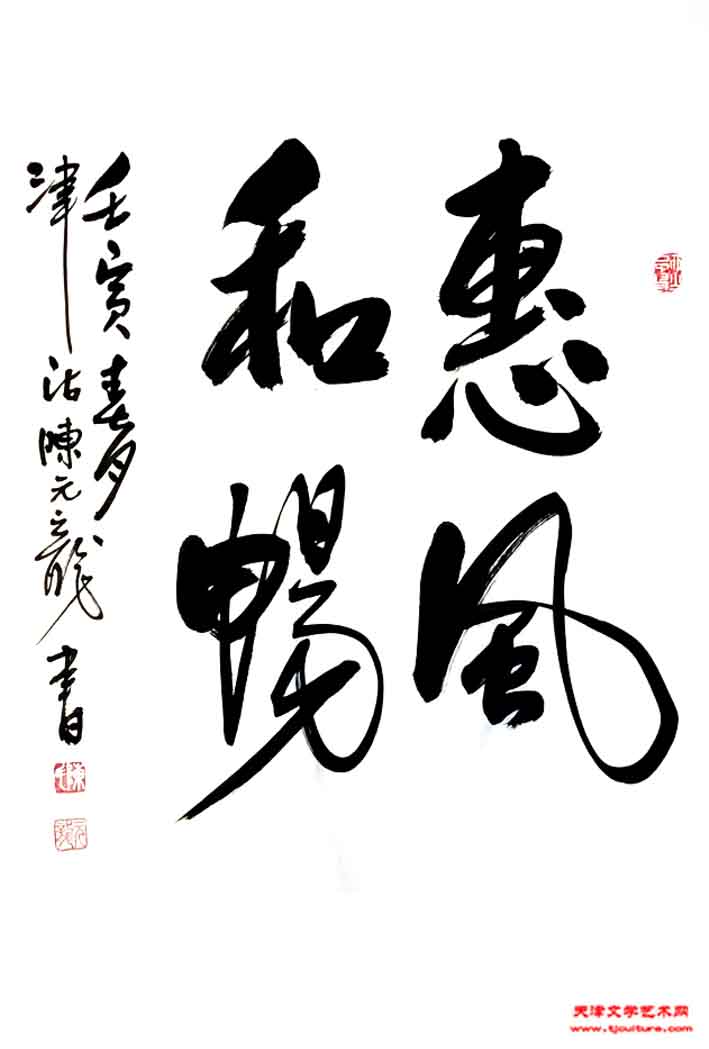 惠風
和暢
壬寅春月
津沽陳元龍書
天津文学艺术网
www.tjculture.com